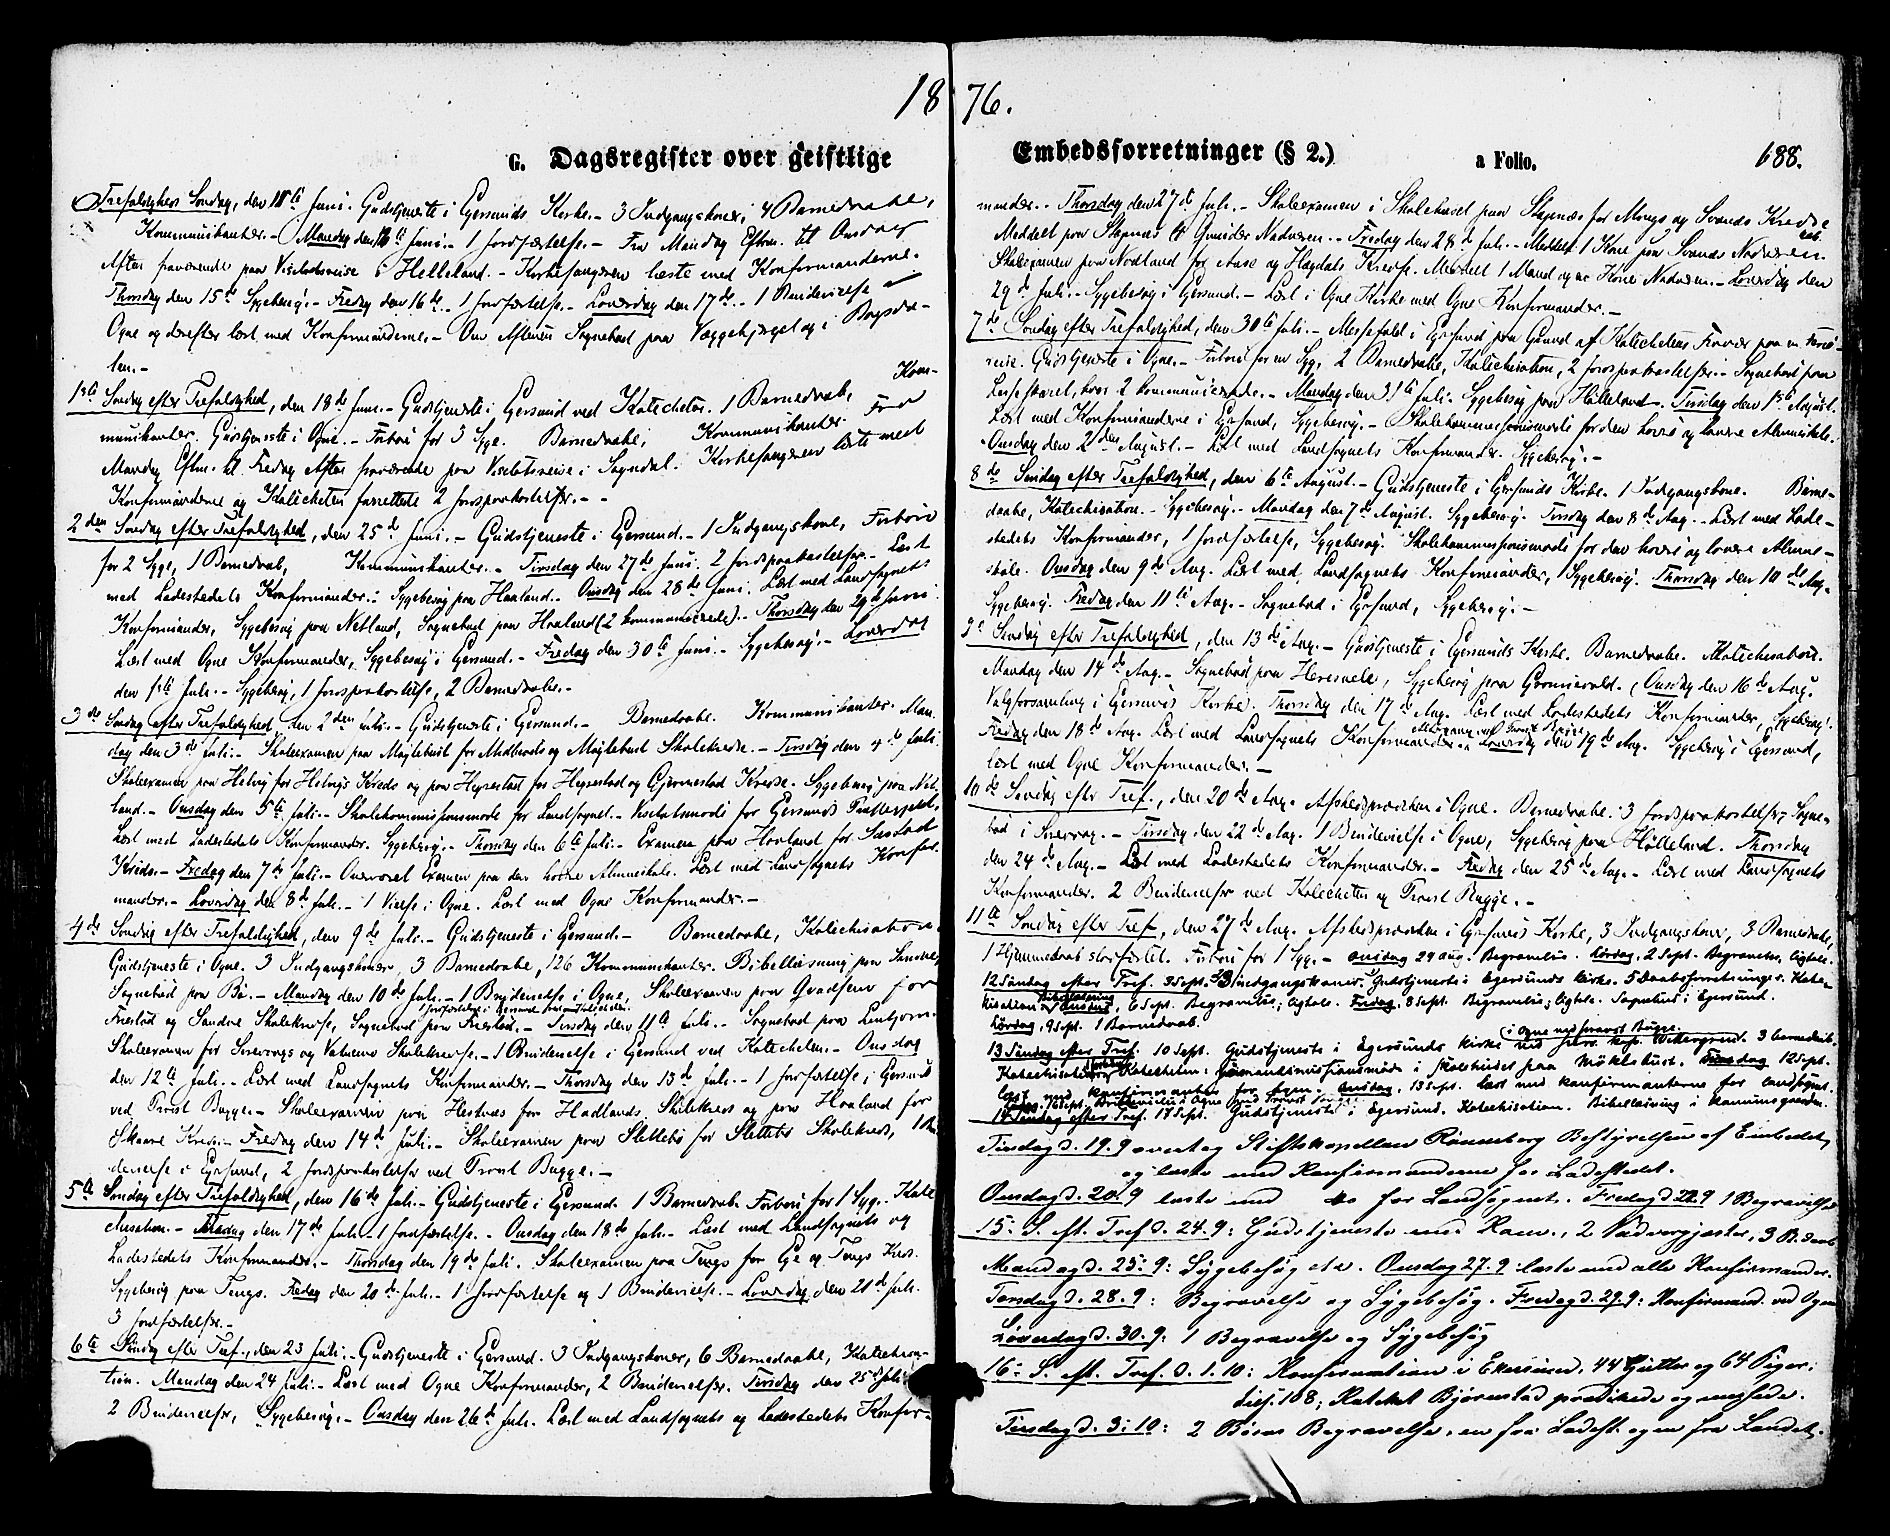 1876.
G. Dagsregister over geistlige Embedsforretninger (§ 2.) a Folio. 688.
Trefoldigheds Søndag, den 11te Juni. Gudstjeneste i Egersunds Kirke. - 3 Indgangskoner, 4 Barnedaabe,
Kommunikanter. - Mandag den Juni. - 1 Jordfæstelse. - Fra Mandag Efterm. til Onsdag
Aften fraværende paa Visitatsreise i Helleland. - Kirkesangeren læste med Konfirmanderne. -
Thorsdag den 15de Sygebesøg. - Fredag den 16de. - 1 Jordfæstelse. - Løverdag den 17de. - 1 Brudevielse i
Ogne og derefter læst med Konfirmanderne. - Om Aftenen Sognebud paa Væggebjerget og i
len. -
1ste Søndag efter Trefoldighed, den 18de Juni. - Gudstjeneste i Egersund ved Katecheten. 1 Barnedaab, Kom-
munikanter. Gudstjeneste i Ogne. - Forbøn for 3 Syge. Barnedaabe, Kommunikanter. Fra
Mandag Eftm. til Fredag Aften fraværende paa Visitatsreise i Sogndal. Kirkesangeren læste med
Konfirmanderne og Katecheten forrettede 2 Jordpaakastelser. -
2den Søndag efter Trefoldighed, den 25de Juni. - Gudstjeneste i Egersund. - 1 Indgangskone, Forbøn
for 2 Syge, 1 Barnedaab, Kommunikanter. - Tirsdag den 27de Juni. 2 Jordpaakastelser. - Læst
med Ladestedets Konfirmander. - Sygebesøg paa Haaland. - Onsdag den 28de Juni. Læst med Landsognets
Konfirmander, Sygebesøg paa Netland, Sognebud paa Haaland (2 kommunicerede). - Thorsdag den 29de Juni.
Læst med Ogne Konfirmander, Sygebesøg i Egersund. - Fredag den 30te Juni. - Sygebesøg. - Løverdag
den 1ste Juli. - Sygebesøg, 1 Jordpaakastelse, 2 Barnedaabe. -
3de Søndag efter Trefoldighed, den 2den Juli. - Gudstjeneste i Egersund. - Barnedaabe. Kommunikanter. Man-
dag den 3de Juli. - Skoleexamen paa Møglebust for Midbrøds og Møglebust Skolekreds. - Tirsdag den 4de Juli.
Skoleexamen paa Helvig for Helvigs Kreds og paa Hegrestad for Hegrestad og Gjermestad Kredse. - Sygebesøg paa Net-
land. - Onsdag den 5te Juli. - Skolekommissionsmøde for Landsognet. - Visitatsmøde for Egersunds
Læst med Ladestedets Konfirmander. Sygebesøg. - Thorsdag den 6te Juli. - Examen paa Hovland for
Kreds. - Fredag den 7de Juli. - Overværet Examen paa den høiere Almueskole. Læst med Landsognets Konfir-
mander. - Løverdag den 8de Juli. - 1 Vielse i Ogne. Læst med Ogne Konfirmander. -
4de Søndag efter Trefoldighed, den 9de Juli. - Gudstjeneste i Egersund. - Barnedaabe, Katechisation.
Gudstjeneste i Ogne. 3 Indgangskoner, 3 Barnedaabe, 126 Kommunikanter. Bibellæsning paa
Sognebud paa Bø. - Mandag den 10de Juli. - 1 Brudevielse i Ogne, Skoleexamen paa for
og Sandve Skolekredse, Sognebud paa - Tirsdag den 11te Juli. - Sognebud paa
Skoleexamen for og Skolekredse. - 1 Brudevielse i Egersund ved Katecheten. - Onsdag
den 12te Juli. - Læst med Landsognets Konfirmander. - Thorsdag den 13de Juli. - 1 Jordfæstelse i Egersund
ved Provst Bugge. - Skoleexamen paa Hestnæs for Hadlands Skolekreds og paa Hovland for
Skaare Kreds. - Fredag den 14de Juli. - Skoleexamen paa Slettebø for Slettebø Skolekreds, 1 Bru-
devielse i Egersund, 2 Jordpaakastelser ved Provst Bugge. -
5te Søndag efter Trefoldighed, den 16de Juli. - Gudstjeneste i Egersund. 1 Barnedaab. Forbøn for 1 Syg. Kate-
chisation. - den 17de Juli. - 1 Jordfæstelse. - Onsdag den 18de Juli. - Læst med Landsognets og
Ladestedets Konfirmander. - Thorsdag den 19de Juli. Skoleexamen paa Tengs for Ege og Tengs Kreds.
Sygebesøg paa Tengs. Fredag den 20de Juli. - 1 Jordfæstelse og 1 Brudevielse. - Løverdag den 21de Juli.
3 Jordfæstelser. -
6te Søndag efter Tref., den 23 Juli. - Gudstjeneste i Egersund. 3 Indgangskoner, 6 Barnedaabe, Katechisa-
tion. Mandag den 24 Juli. - Læst med Ogne Konfirmander, 2 Brudevielser. Tirsdag den 25de Juli.
2 Brudevielser, Sygebesøg. - Onsdag den 26de Juli. Læst med Landsognets og Ladestedets Konfir-
mander. - Thorsdag den 27de Juli. - Skoleexamen i Skolehuset paa Stapnæs for Mongs og Svands Kredse
Meddelt paa Stapnæs 4 Nadveren. - Fredag den 28de Juli. - Meddelt 1 Kone paa Svands Nadveren.
Skoleexamen paa Nodland for Aase og Høgdals Kredse. Meddelt 1 Mand og Kone Nadveren. - Løverdag den
29de Juli. - Sygebesøg i Egersund. - Læst i Ogne Kirke med Ogne Konfirmander. -
7de Søndag efter Trefoldighed, den 30te Juli. - Messefald i Egersund paa Grund af Katechetens Fravær paa en
reise. Gudstjeneste i Ogne. - Forbøn for en Syg, 2 Barnedaabe, Katechisation, 2 Jordpaakastelser. - Sognebud paa
hvor 2 kommunicerede. - Mandag den 31te Juli. Sygebesøg paa Helleland. - Tirsdag den 1ste August.
Læst med Konfirmanderne i Egersund, Sygebesøg. - Skolekommissionsmøde for den høiere og lavere Almueskole.
Onsdag den 2den August. - Læst med Landsognets Konfirmander. Sygebesøg. -
8de Søndag efter Trefoldighed, den 6te August. - Gudstjeneste i Egersunds Kirke. 1 Indgangskone. Barne-
daabe, Katechisation. - Sygebesøg. - Mandag den 7de August. Sygebesøg. Tirsdag den 8de Aug. - Læst med Lade-
stedets Konfirmander, 1 Jordfæstelse, Sygebesøg. Skolekommissionsmøde for den høiere og lavere Almue-
skole. Onsdag den 9de Aug. Læst med Landsognets Konfirmander, Sygebesøg. Thorsdag den 10de Aug. -
Sygebesøg. Fredag den 11te Aug. - Sognebud i Egersund, Sygebesøg. -
9de Søndag efter Trefoldighed, den 13de Aug. - Gudstjeneste i Egersunds Kirke. Barnedaabe. Katechisation.
Mandag den 14de Aug. - Sognebud paa Sygebesøg paa (Onsdag den 16de Aug.
Valgforsamling i Egersunds Kirke). Thorsdag den 17de Aug. Læst med Ladestedets Konfirmander, Sygebesøg.
Fredag den 18de Aug. Læst med Landsognets Konfirmander. Løverdag den 19de Aug. Sygebesøg i Egersund,
læst med Ogne Konfirmander. -
10de Søndag efter Tref., den 20de Aug. Afskedspræken i Ogne. Barnedaabe. 3 Jordpaakastelser. Sogne-
bud i - Tirsdag den 22de Aug. 1 Brudevielse i Ogne, Sygebesøg paa Helleland. Thorsdag
den 24de Aug. - Læst med Ladestedets Konfirmander. - Fredag den 25de Aug. - Læst med Landsognets
Konfirmander. 2 Brudevielser ved Katecheten og Provst Bugge. -
11te Søndag efter Tref., den 27de Aug. Afskedspræken i Egersunds Kirke, 3 Indgangskoner, 3 Barnedaabe,
1 Hjemmedaab stadfæstet. Forbøn for 1 Syg. - Onsdag 29 Aug. Begravelse. Lørdag 2 Sept. Begravelse, ligtale.
12 Søndag efter Tref. 3 Sept. Indgangskoner, Gudstjeneste i Egersunds Kirke. 5 Daabsforretninger. Kate-
kisation. Bibellæsning. Onsdag 6 Sept. Begravelse; ligtale. Fredag 8 Sept. Begravelse; ligtale. Sognebud i Egersund.
Lördag, 9 Sept. 1 Barnedaab.
i Ogne ved Provst Bugge.
13 Søndag efter Tref. 10 Sept. Gudstjeneste i Egersunds kirke ved pers. kap. Wittergrend. 3 barnedaab.
Katechisation Katecheten: Skolehuset paa Møklebust. 12 Sept.
læst med konfirmanter for byen. onsdag, 13 Sept. læst med konfirmanterne for landsognet.
14 Søndag efter Tref. 17 Sept. Gudstjeneste i Egersund. Katechisation. Bibellæsning i
Tirsdag d. 19.9 overtog Stiftskapellan Rønneberg Bestyrelsen af Embedet,
og læste med Konfirmanderne for Ladestedet.
Onsdag d. 20.9 læste med do for Landsognet. Fredag d. 22.9 1 Begravelse
15: S. eft. Tref. d. 24.9: Gudstjeneste med Kom., 2 Nadvergjæster, 3 B. Daab
Mandag d. 25.9: Sygebesøg etc. Onsdag 27.9 læste med alle Konfirmander.
Torsdag d. 28.9: Begravelse og Sygebesøg. Fredag d. 29.9: Konfirmand. ved Ogne
Løverdag d. 30.9: 1 Begravelse og Sygebesøg
16: S. eft. Tref. d. 1.10: Konfirmation i Ekersund, 44 Gutter og 64 Piger;
tils. 108; Kateket Bjørnstad prædikede og messede.
Tirsdag d. 3:10: 2 Børns Begravelse, en fra Ladest. og en fra Landet.